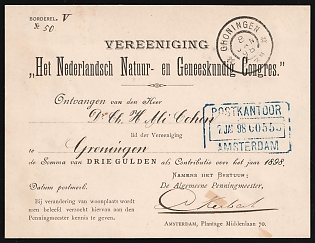 BORDEREL V
№ 50
GRONINGEN
8 JAN 98
VEREENIGING
„Het Nederlandsch Natuur- en Geneeskundig Congres."
Ontvangen van den Heer
Dr. Ch. H. Ali Cohen
lid der Vereeniging
te Groningen
de Somma van DRIE GULDEN als Contributie over het jaar 1898.
POSTKANTOOR
7 JAN 98
AMSTERDAM
NAMENS HET BESTUUR:
De Algemeene Penningmeester,
Datum postmerk.
Bij verandering van woonplaats wordt
men beleefd verzocht hiervan aan den
Penningmeester kennis te geven.
AMSTERDAM, Plantage Middenlaan